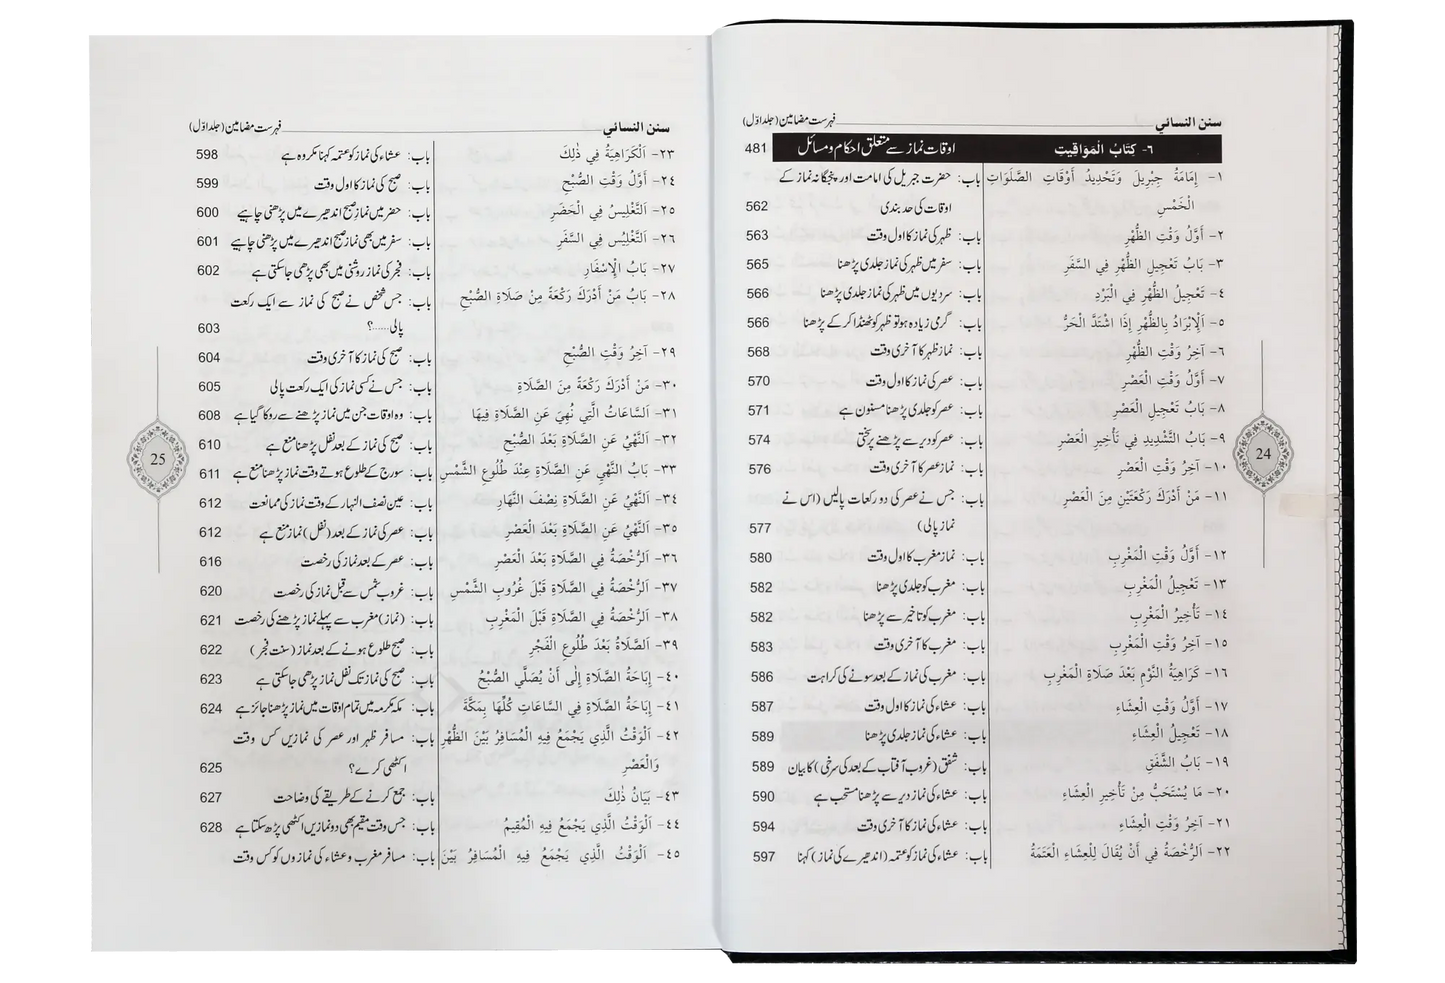 سنن النسائي فہرست مضامین (جلد اوّل)
٦- كِتَابُ الْمَوَاقِيتِ اوقات نماز سے متعلق احکام و مسائل 481
١- إِمَامَةُ جِبْرِيلَ وَتَحْدِيدُ أَوْقَاتِ الصَّلَوَاتِ باب: حضرت جبریل کی امامت اور پنجگانہ نماز کے
الْخَمْسِ اوقات کی حد بندی 562
٢- أَوَّلُ وَقْتِ الظُّهْرِ باب: ظہر کی نماز کا اول وقت 563
٣- بَابُ تَعْجِيلِ الظُّهْرِ فِي السَّفَرِ باب: سفر میں ظہر کی نماز جلدی پڑھنا 565
٤- تَعْجِيلُ الظُّهْرِ فِي الْبَرْدِ باب: سردیوں میں ظہر کی نماز جلدی پڑھنا 566
٥- اَلْإِبْرَادُ بِالظُّهْرِ إِذَا اشْتَدَّ الْحَرُّ باب: گرمی زیادہ ہو تو ظہر کو ٹھنڈا کر کے پڑھنا 566
٦- آخِرُ وَقْتِ الظُّهْرِ باب: نماز ظہر کا آخری وقت 568
٧- أَوَّلُ وَقْتِ الْعَصْرِ باب: عصر کی نماز کا اول وقت 570
٨- بَابُ تَعْجِيلِ الْعَصْرِ باب: عصر کو جلدی پڑھنا مسنون ہے 571
٩- بَابُ التَّشْدِيدِ فِي تَأْخِيرِ الْعَصْرِ باب: عصر کو دیر سے پڑھنے پر سختی 574
١٠- آخِرُ وَقْتِ الْعَصْرِ باب: نماز عصر کا آخری وقت 576
١١- مَنْ أَدْرَكَ رَكْعَتَيْنِ مِنَ الْعَصْرِ باب: جس نے عصر کی دو رکعات پالیں (اس نے
نماز پالی) 577
١٢- أَوَّلُ وَقْتِ الْمَغْرِبِ باب: نماز مغرب کا اول وقت 580
١٣- تَعْجِيلُ الْمَغْرِبِ باب: مغرب کو جلدی پڑھنا 582
١٤- تَأْخِيرُ الْمَغْرِبِ باب: مغرب کو تاخیر سے پڑھنا 582
١٥- آخِرُ وَقْتِ الْمَغْرِبِ باب: مغرب کا آخری وقت 583
١٦- كَرَاهِيَةُ النَّوْمِ بَعْدَ صَلَاةِ الْمَغْرِبِ باب: مغرب کی نماز کے بعد سونے کی کراہت 586
١٧- أَوَّلُ وَقْتِ الْعِشَاءِ باب: عشاء کی نماز کا اول وقت 587
١٨- تَعْجِيلُ الْعِشَاءِ باب: عشاء کی نماز جلدی پڑھنا 589
١٩- بَابُ الشَّفَقِ باب: شفق (غروب آفتاب کے بعد کی سرخی) کا بیان 589
٢٠- مَا يُسْتَحَبُّ مِنْ تَأْخِيرِ الْعِشَاءِ باب: عشاء کی نماز دیر سے پڑھنا مستحب ہے 590
٢١- آخِرُ وَقْتِ الْعِشَاءِ باب: عشاء کی نماز کا آخری وقت 594
٢٢- اَلرُّخْصَةُ فِي أَنْ يُقَالَ لِلْعِشَاءِ الْعَتَمَةُ باب: عشاء کی نماز کو عتمہ (اندھیرے کی نماز) کہنا 597
24
سنن النسائي فہرست مضامین (جلد اوّل)
٢٣- اَلْكَرَاهِيَةُ فِي ذٰلِكَ باب: عشاء کی نماز کو عتمہ کہنا مکروہ ہے 598
٢٤- أَوَّلُ وَقْتِ الصُّبْحِ باب: صبح کی نماز کا اول وقت 599
٢٥- اَلتَّغْلِيسُ فِي الْحَضَرِ باب: حضر میں نماز صبح اندھیرے میں پڑھنی چاہیے 600
٢٦- اَلتَّغْلِيسُ فِي السَّفَرِ باب: سفر میں بھی نماز صبح اندھیرے میں پڑھنی چاہیے 601
٢٧- بَابُ الْإِسْفَارِ باب: فجر کی نماز روشنی میں بھی پڑھی جا سکتی ہے 602
٢٨- بَابُ مَنْ أَدْرَكَ رَكْعَةً مِنْ صَلَاةِ الصُّبْحِ باب: جس شخص نے صبح کی نماز سے ایک رکعت
پالی.....؟ 603
٢٩- آخِرُ وَقْتِ الصُّبْحِ باب: صبح کی نماز کا آخری وقت 604
٣٠- مَنْ أَدْرَكَ رَكْعَةً مِنَ الصَّلَاةِ باب: جس نے کسی نماز کی ایک رکعت پالی 605
٣١- اَلسَّاعَاتُ الَّتِي نُهِيَ عَنِ الصَّلَاةِ فِيهَا باب: وہ اوقات جن میں نماز پڑھنے سے روکا گیا ہے 608
٣٢- اَلنَّهْيُ عَنِ الصَّلَاةِ بَعْدَ الصُّبْحِ باب: صبح کی نماز کے بعد نفل پڑھنا منع ہے 610
٣٣- بَابُ النَّهْيِ عَنِ الصَّلَاةِ عِنْدَ طُلُوعِ الشَّمْسِ باب: سورج کے طلوع ہوتے وقت نماز پڑھنا منع ہے 611
٣٤- اَلنَّهْيُ عَنِ الصَّلَاةِ نِصْفَ النَّهَارِ باب: عین نصف النہار کے وقت نماز کی ممانعت 612
٣٥- اَلنَّهْيُ عَنِ الصَّلَاةِ بَعْدَ الْعَصْرِ باب: عصر کی نماز کے بعد (نفل) نماز منع ہے 612
٣٦- اَلرُّخْصَةُ فِي الصَّلَاةِ بَعْدَ الْعَصْرِ باب: عصر کے بعد نماز کی رخصت 616
٣٧- اَلرُّخْصَةُ فِي الصَّلَاةِ قَبْلَ غُرُوبِ الشَّمْسِ باب: غروب شمس سے قبل نماز کی رخصت 620
٣٨- اَلرُّخْصَةُ فِي الصَّلَاةِ قَبْلَ الْمَغْرِبِ باب: (نماز) مغرب سے پہلے نماز پڑھنے کی رخصت 621
٣٩- اَلصَّلَاةُ بَعْدَ طُلُوعِ الْفَجْرِ باب: صبح طلوع ہونے کے بعد نماز (سنت فجر) 622
٤٠- إِبَاحَةُ الصَّلَاةِ إِلَى أَنْ يُصَلَّي الصُّبْحُ باب: صبح کی نماز تک نفل نماز پڑھی جا سکتی ہے 623
٤١- إِبَاحَةُ الصَّلَاةِ فِي السَّاعَاتِ كُلِّهَا بِمَكَّةَ باب: مکہ مکرمہ میں تمام اوقات میں نماز پڑھنا جائز ہے 624
٤٢- اَلْوَقْتُ الَّذِي يَجْمَعُ فِيهِ الْمُسَافِرُ بَيْنَ الظُّهْرِ باب: مسافر ظہر اور عصر کی نمازیں کس وقت
وَالْعَصْرِ اکٹھی کرے؟ 625
٤٣- بَيَانُ ذٰلِكَ باب: جمع کرنے کے طریقے کی وضاحت 627
٤٤- اَلْوَقْتُ الَّذِي يَجْمَعُ فِيهِ الْمُقِيمُ باب: جس وقت مقیم بھی دو نمازیں اکٹھی پڑھ سکتا ہے 628
٤٥- اَلْوَقْتُ الَّذِي يَجْمَعُ فِيهِ الْمُسَافِرُ بَيْنَ باب: مسافر مغرب و عشاء کی نمازوں کو کس وقت
25